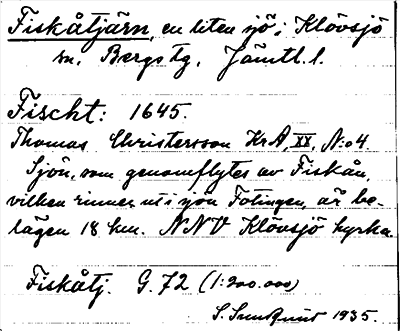 Fiskåtjärn, en liten sjö i Klövsjö
sn, Bergs tg, Jämtl. l.
Fischt: 1645.
Thomas Christersson KrA, XX, N:o 4.
Sjön, som genomflytes av Fiskån,
vilken rinner ut i sjön Fotingen, är be-
lägen 18 km. NNV Klövsjö kyrka.
Fiskåtj. G. 72 (1:200.000)
S. Sundquist 1935.